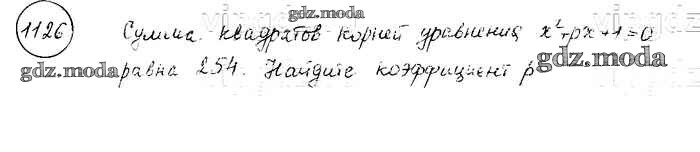 1126 Сумма квадратов корней уравнения x²+px+1=0
равна 254. Найдите коэффициент p
gdz.moda
gdz.moda
gdz.moda
gdz.moda
gdz.moda